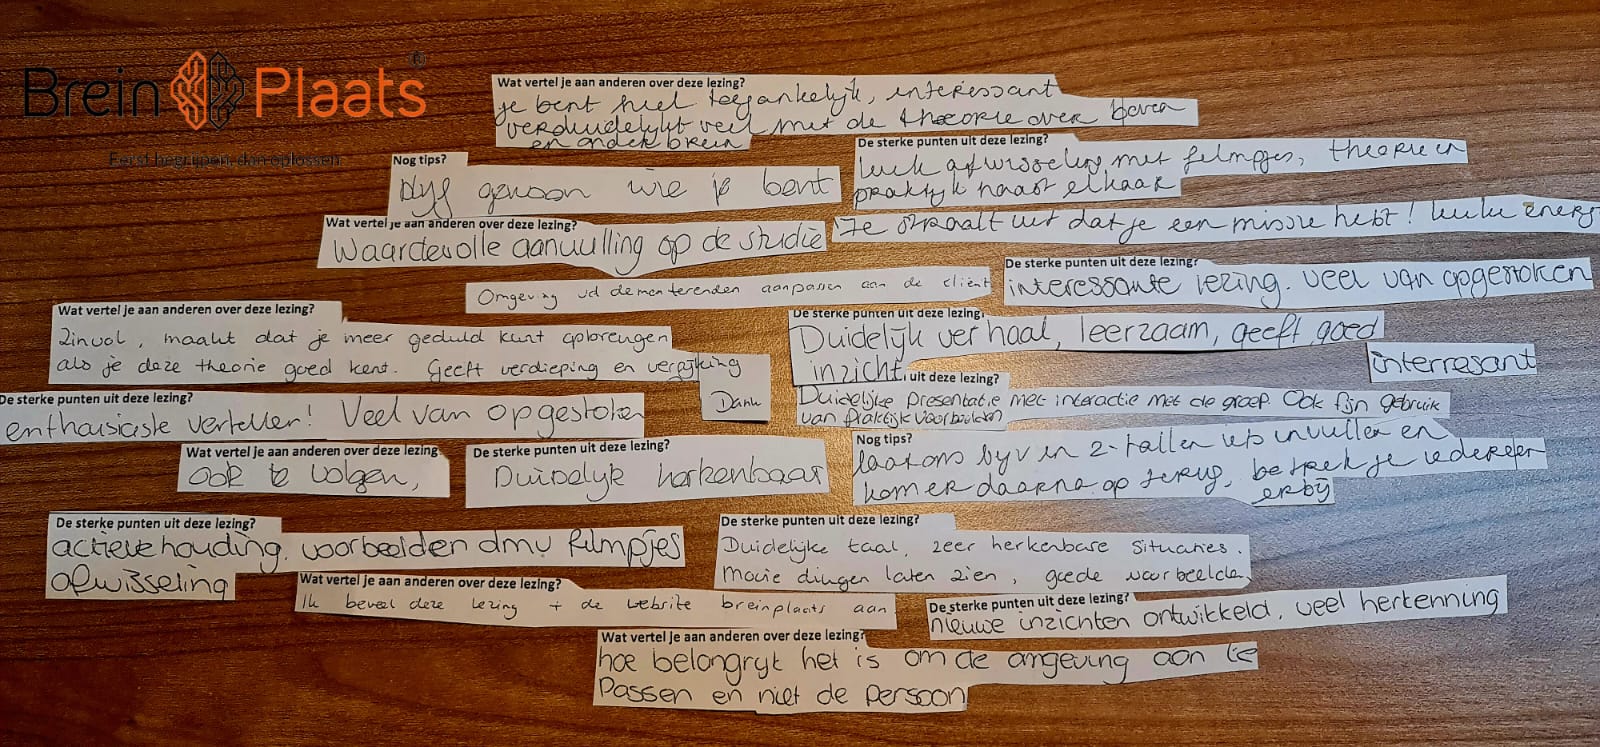 Brein Plaats®
Eerst begrijpen, dan oplossen
Wat vertel je aan anderen over deze lezing?
je bent heel toegankelijk, interessant
verduidelijkt veel met de theorie over boven
en onder brein
Nog tips?
blijf gewoon wie je bent
De sterke punten uit deze lezing?
leuk afwisseling met filmpjes, theorie en
praktijk naast elkaar
Wat vertel je aan anderen over deze lezing?
waardevolle aanvulling op de studie
Je straalt uit dat je een missie hebt! leuke energ
Omgeving vd dementerenden aanpassen aan de cliënt
De sterke punten uit deze lezing?
interessante lezing. veel van opgestoken
Wat vertel je aan anderen over deze lezing?
Zinvol, maakt dat je meer geduld kunt opbrengen
als je deze theorie goed kent. Geeft verdieping en verrijking
Dank
De sterke punten uit deze lezing?
Duidelijk verhaal, leerzaam, geeft goed
inzicht
interresant
uit deze lezing?
Duidelijke presentatie met interactie met de groep. Ook fijn gebruik
van praktijk voorbeelden
De sterke punten uit deze lezing?
enthousiaste verteller! Veel van opgestoken
Wat vertel je aan anderen over deze lezing
ook te volgen,
De sterke punten uit deze lezing?
Duidelijk herkenbaar
Nog tips?
laat ons bijv in 2-tallen iets invullen en
kom er daarna op terug, betrek je iedereen
erbij
De sterke punten uit deze lezing?
actieve houding. voorbeelden dmv filmpjes
afwisseling
De sterke punten uit deze lezing?
Duidelijke taal, zeer herkenbare situaties.
Mooie dingen laten zien, goede voorbeelden
Wat vertel je aan anderen over deze lezing?
Ik beveel deze lezing + de website breinplaats aan
De sterke punten uit deze lezing?
nieuwe inzichten ontwikkeld, veel herkenning
Wat vertel je aan anderen over deze lezing?
hoe belangrijk het is om de omgeving aan te
passen en niet de persoon